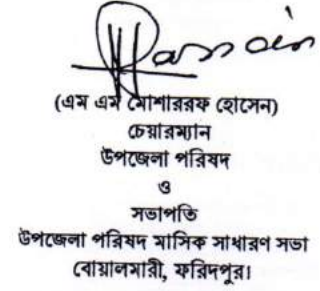 (এম এম মোশাররফ হোসেন)
চেয়ারম্যান
উপজেলা পরিষদ
ও
সভাপতি
উপজেলা পরিষদ মাসিক সাধারণ সভা
বোয়ালমারী, ফরিদপুর।